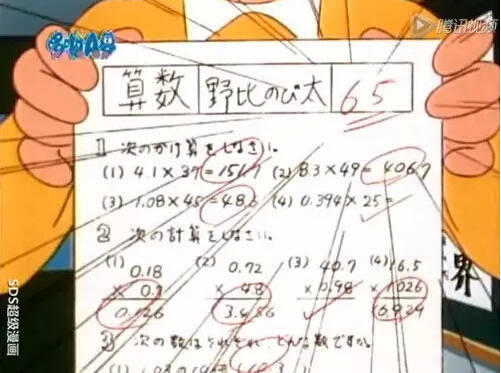 腾讯视频
算数 野比のび太 65
1 次のかけ算をしなさい。
(1) 4.1×37=151.7 (2) 8.3×49=406.7
(3) 1.08×45=48.6 (4) 0.394×25=
2 次の計算をしなさい。
(1) 0.18 (2) 0.72 (3) 40.7 (4) 16.5
×0.7 ×4.8 ×0.98 ×1.026
0.126 3.456 16.929
3 次の数はそれぞれどんな数ですか。
界
SDS超级漫画